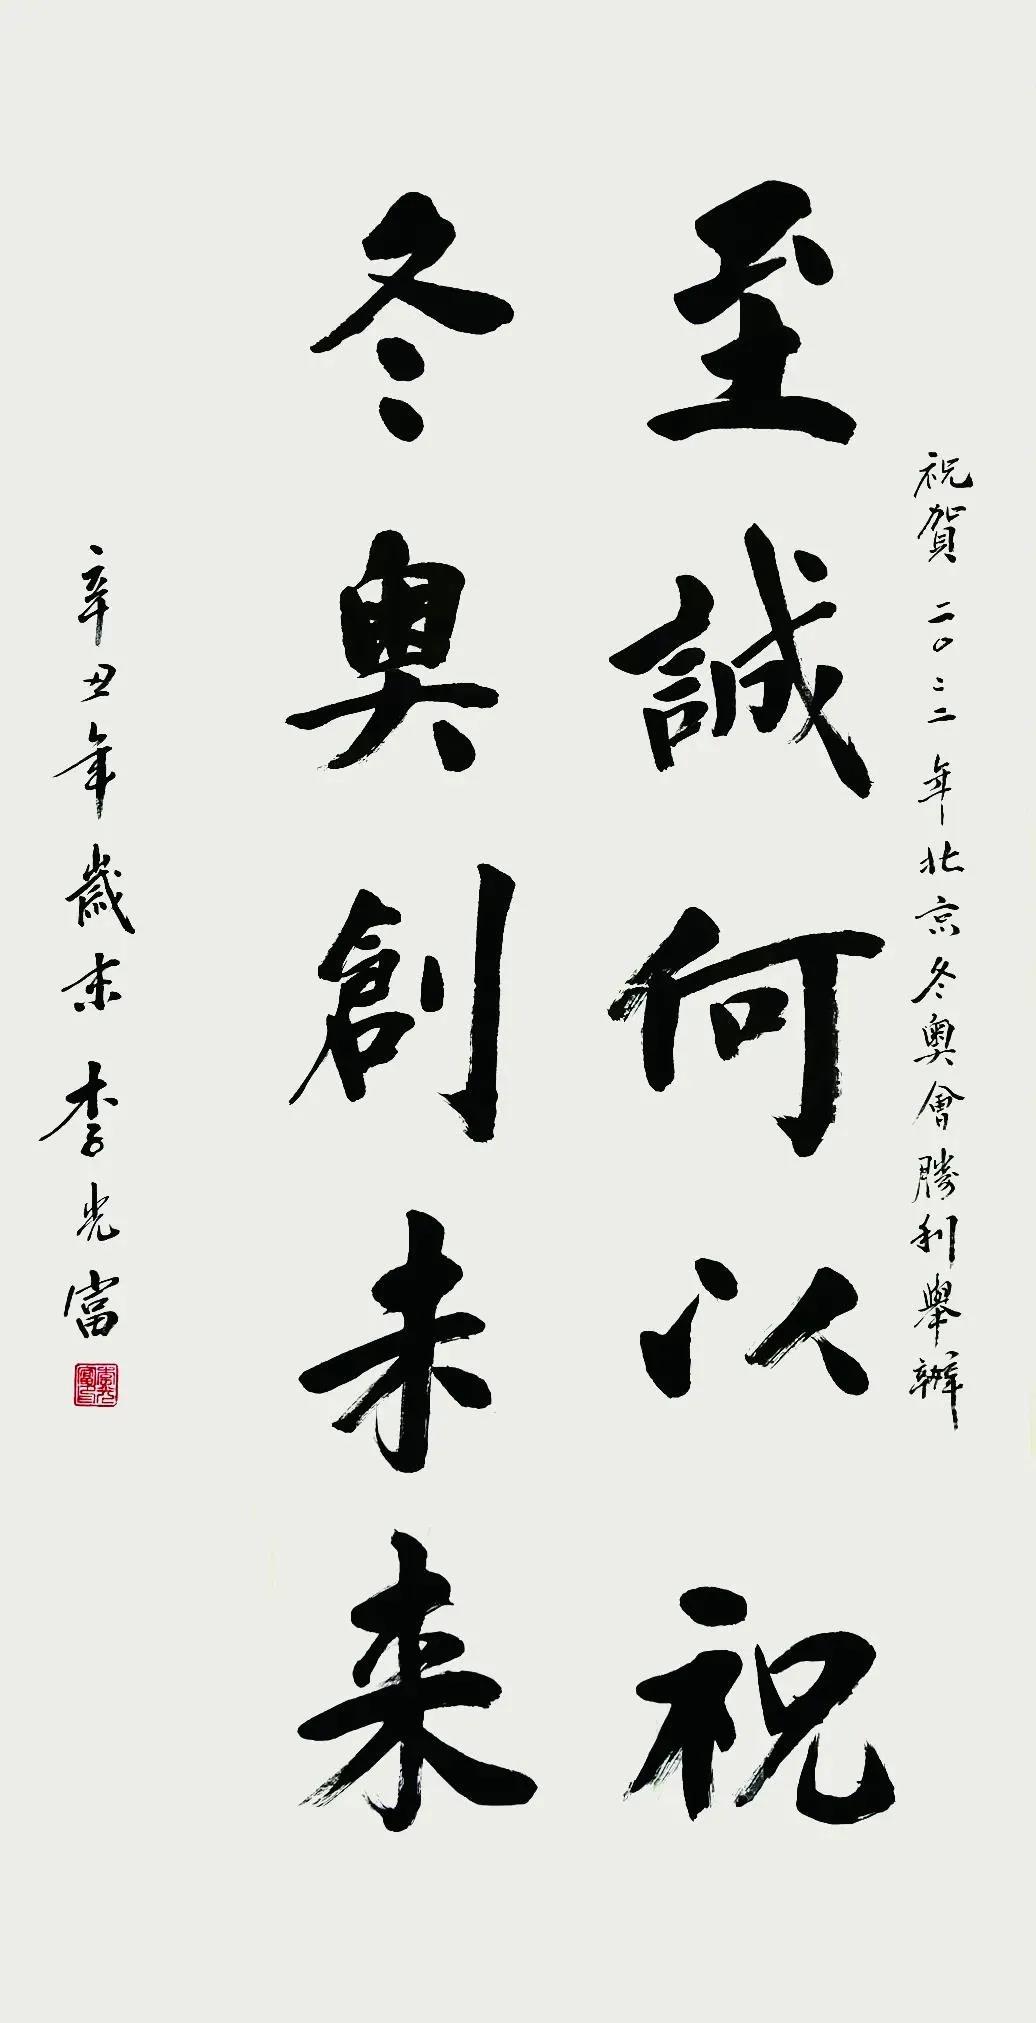 祝賀二〇二二年北京冬奧會勝利舉辦
至誠何以祝
冬奧創未来
辛丑年歲末 李光富